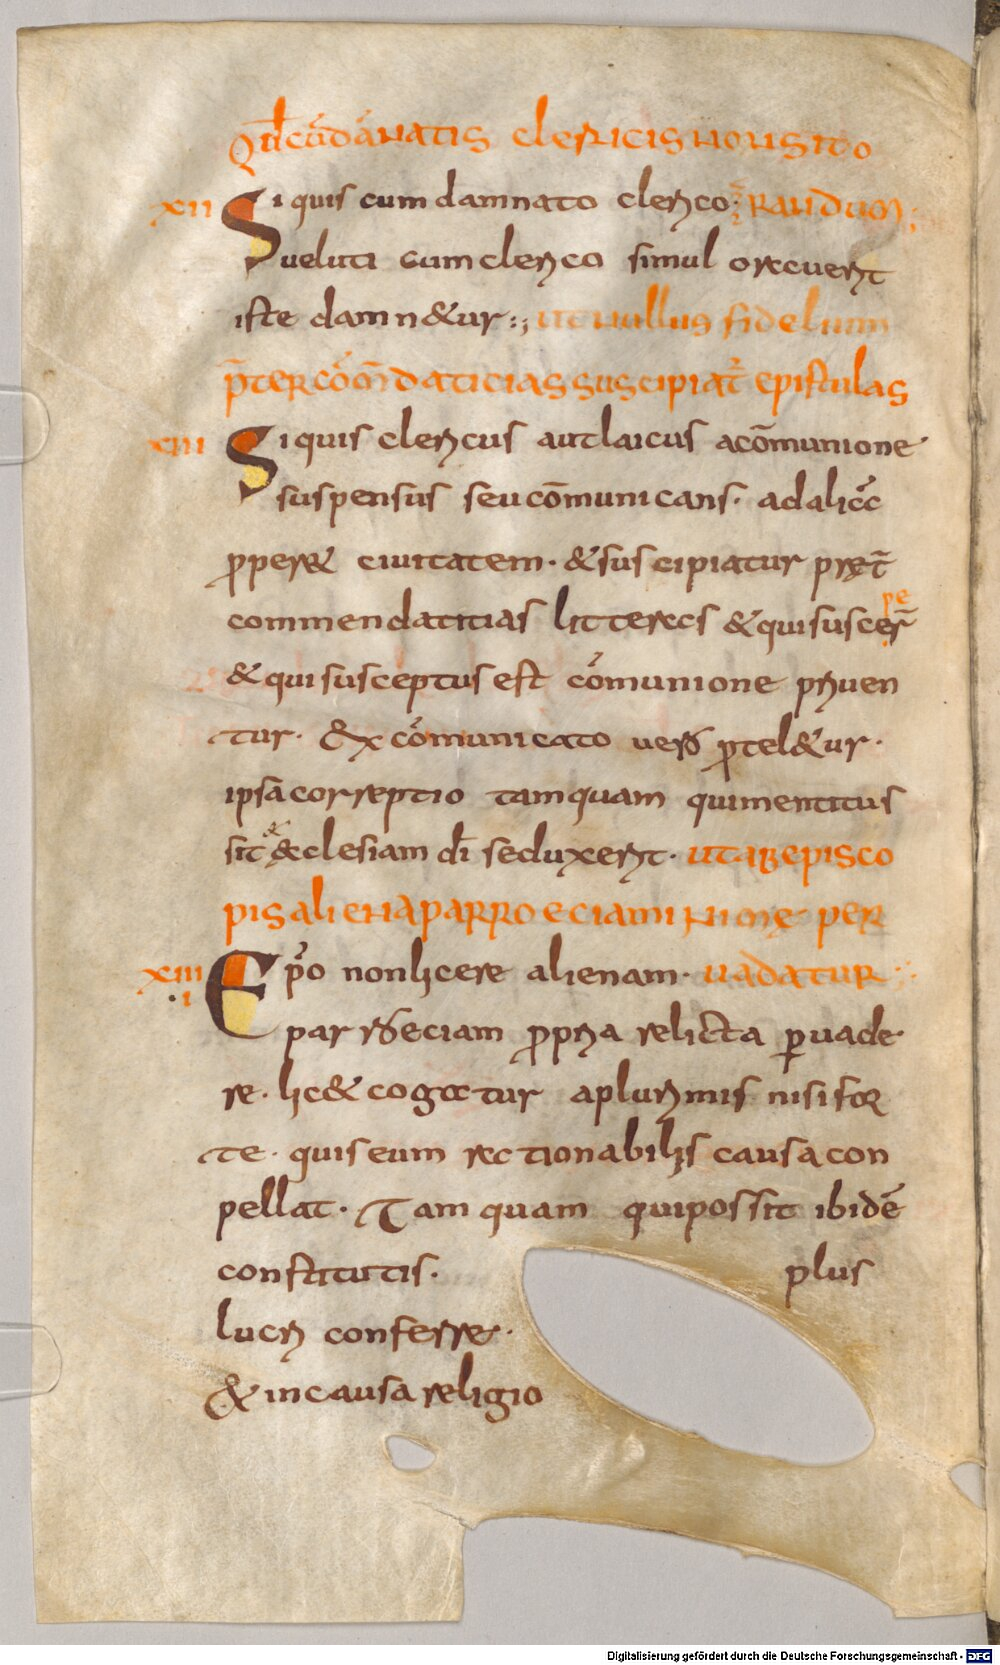 Qđ cū dānatis clericis non sit o
xii Si quis cum damnato clerico; randum;
veluti cum clerico simul oraverit
iste damn&ur:; ut nullus fidelium
p̄ter cōm̄daticias suscipiat epistulas
xiii Si quis clericus aut laicus a cōmunione
suspensus seu cōmunicans · ad aliā
proper& civitatem · & suscipiatur pręt̄
commendaticias litteras & qui susceper̄
& qui susceptus est cōmunione priven
tur · & excōmunicato vero protel&ur ·
ipsa correptio tamquam qui mentitus
sit & ecclesiam dī seduxerit · ut ab episco
pis aliena parroecia minime per
xiiii Ep̄o non licere alienam · vadatur
parroeciam propria relicta pervade
re · lic& cogatur a plurimis nisi for
te · quis eum rationabilis causa con
pellat · Tamquam qui possit ibidē
constitutis · plus
lucri conferre ·
& in causa religio
Digitalisierung gefördert durch die Deutsche Forschungsgemeinschaft - DFG